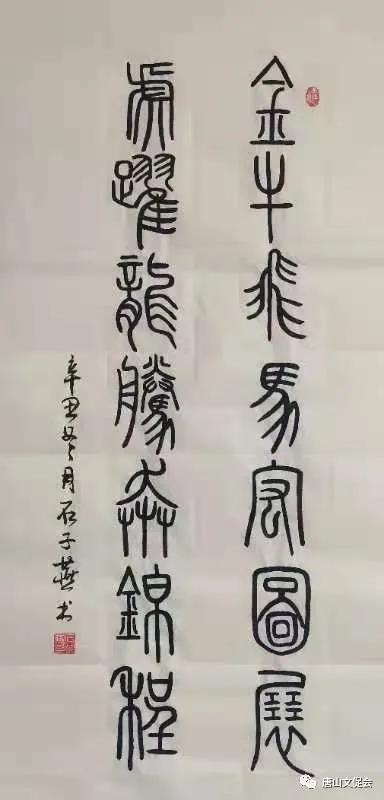 金牛飛馬宏圖展
虎躍龍騰奔錦程
辛丑冬月石子燕书
唐山文促会